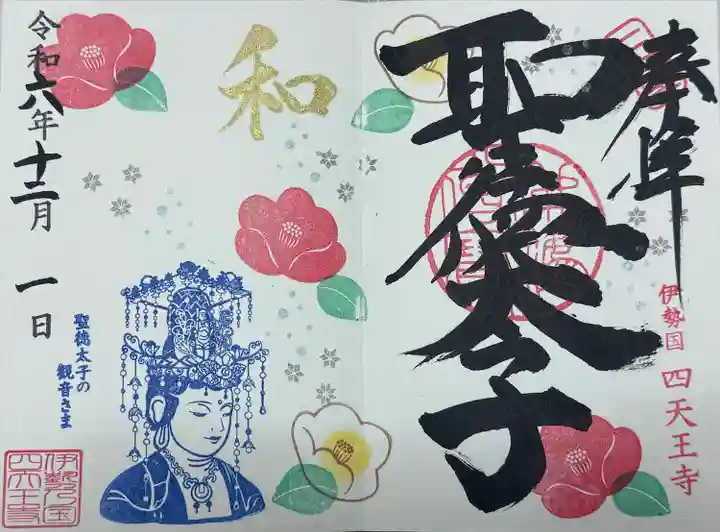 奉拝
聖徳太子
伊勢国 四天王寺
和
令和六年十二月一日
聖徳太子の
観音さま
伊勢乃国
四天王寺